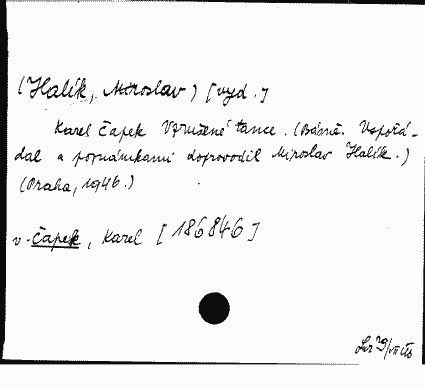 (Halík, Miroslav) [vyd.]
Karel Čapek Vzrušené tance. (Básně. Uspořá-
dal a poznámkami doprovodil Miroslav Halík.)
(Praha, 1946.)
v. Čapek, Karel [186846]